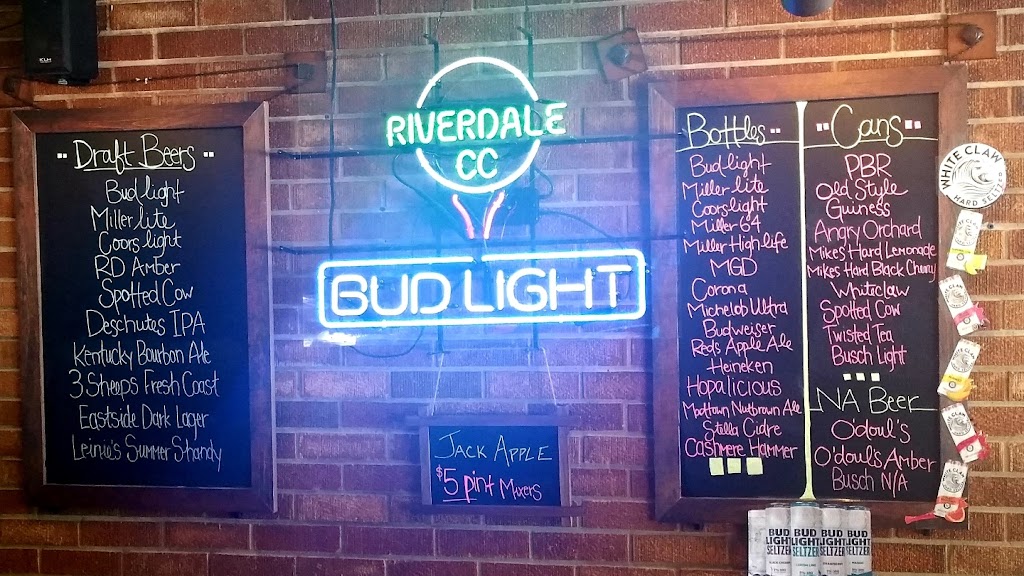 KLH
"Draft Beers"
Bud light
Miller lite
Coors light
RD Amber
Spotted Cow
Deschutes IPA
Kentucky Bourbon Ale
3 Sheeps Fresh Coast
Eastside Dark Lager
Leinie's Summer Shandy
RIVERDALE
CC
BUD LIGHT
JACK APPLE
$5 pint Mixers
"Bottles"
Bud light
Miller lite
Coors light
Miller 64
Miller High life
MGD
Corona
Michelob Ultra
Budweiser
Reds Apple Ale
Heineken
Hopalicious
Modtown Nutbrown Ale
Stella Cidre
Cashmere Hammer
"Cans"
PBR
Old Style
Guiness
Angry Orchard
Mikes Hard Lemonade
Mikes Hard Black Cherry
Whiteclaw
Spotted Cow
Twisted Tea
Busch Light
NA Beer
O'doul's
O'douls Amber
Busch N/A
WHITE CLAW
HARD SELTZER
BUD LIGHT SELTZER
BUD LIGHT SELTZER
BUD LIGHT SELTZER
BUD LIGHT SELTZER